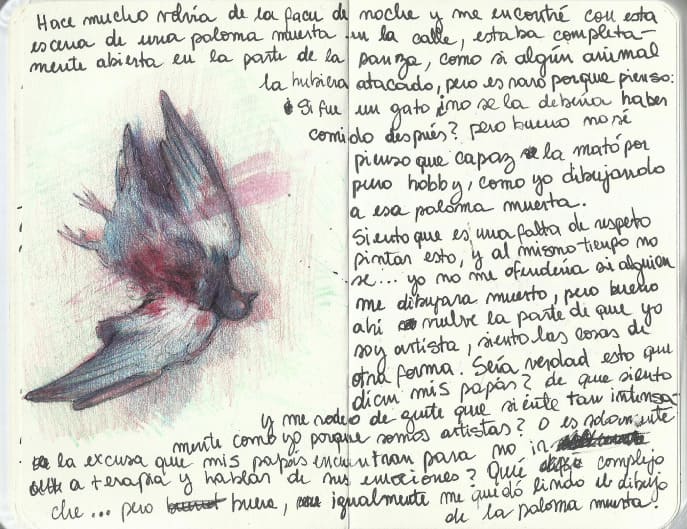 Hace mucho volvía de la facu de noche y me encontré con esta
escena de una paloma muerta en la calle, estaba completa-
mente abierta en la parte de la panza, como si algún animal
la hubiera atacado, pero es raro porque pienso:
Si fue un gato ¿no se la debería haber
comido después? pero bueno no sé
pienso que capaz la mató por
puro hobby, como yo dibujando
a esa paloma muerta.
Siento que es una falta de respeto
pintar esto, y al mismo tiempo no
se... yo no me ofendería si alguien
me dibujara muerto, pero bueno
ahí vuelve la parte de que yo
soy artista, siento las cosas de
otra forma. Sería verdad esto que
dicen mis papás? de que siento
y me rodeo de gente que siente tan intensa-
mente como yo porque somos artistas? O es solamente
la excusa que mis papás encuentran para no ir
a terapia y hablar de sus emociones? Qué complejo
che... pero bueno, igualmente me quedó lindo el dibujo
de la paloma muerta.